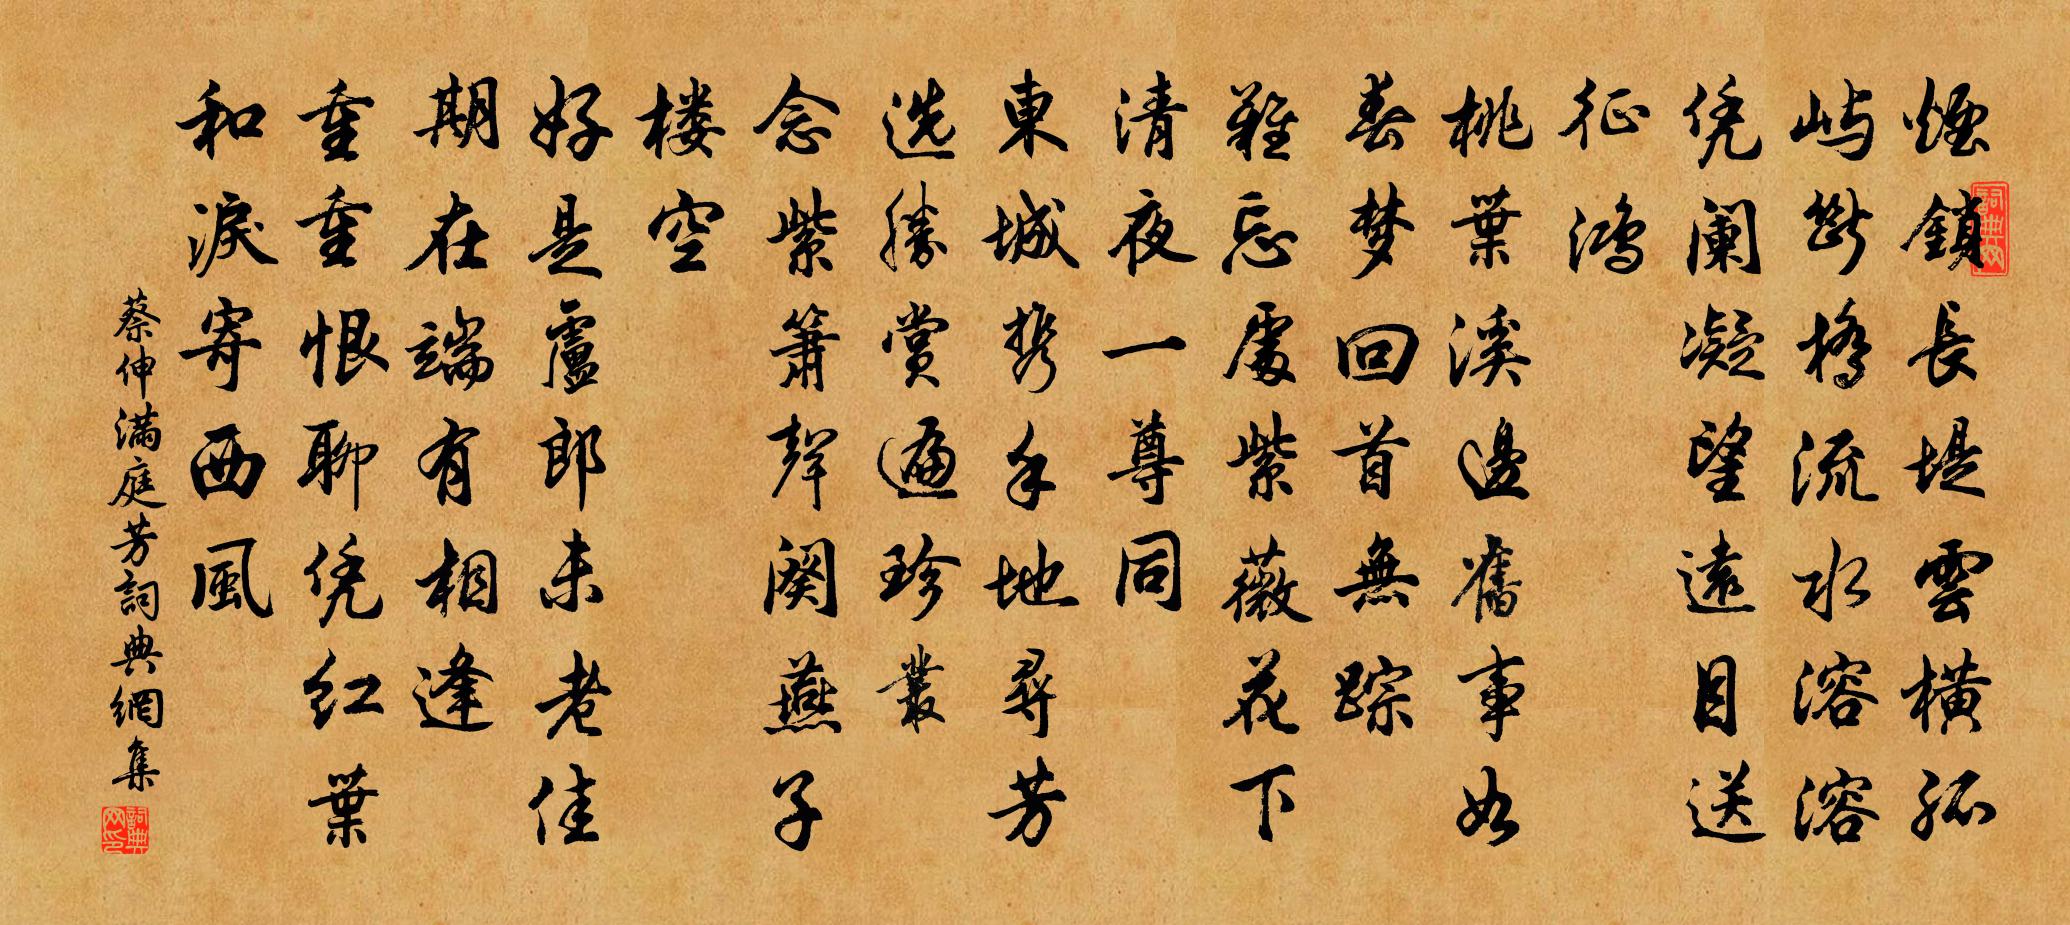 煙鎖長堤雲橫孤
屿斷橋流水溶溶
凭阑凝望遠目送
征鴻
桃葉溪邊舊事如
春梦回首無踪
難忘處紫薇花下
清夜一尊同
東城携手地尋芳
选勝赏遍珍叢
念紫箫聲阕燕子
楼空
好是盧郎未老佳
期在端有相逢
重重恨聊凭红葉
和淚寄西風
蔡伸滿庭芳詞典網集
詞典网
詞典网印